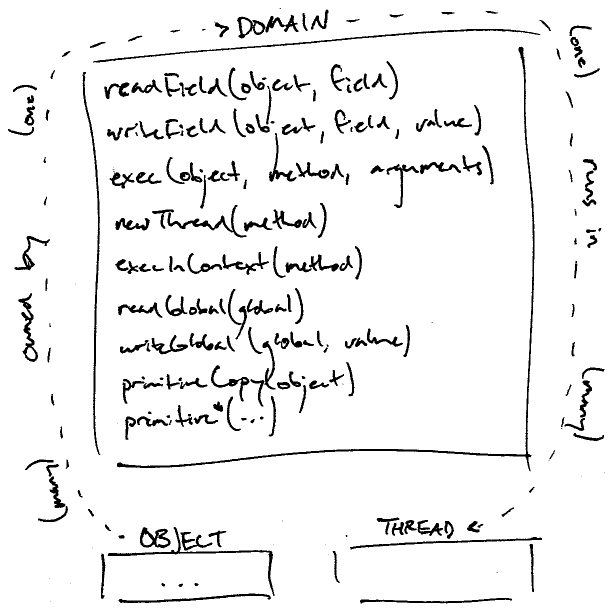 DOMAIN
(one)
(one)
readField(object, field)
writeField(object, field, value)
exec(object, method, arguments)
newThread(method)
execInContext(method)
readGlobal(global)
writeGlobal(global, value)
primitiveCopy(object)
primitive*(...)
owned by
runs in
(many)
(many)
OBJECT
THREAD
...